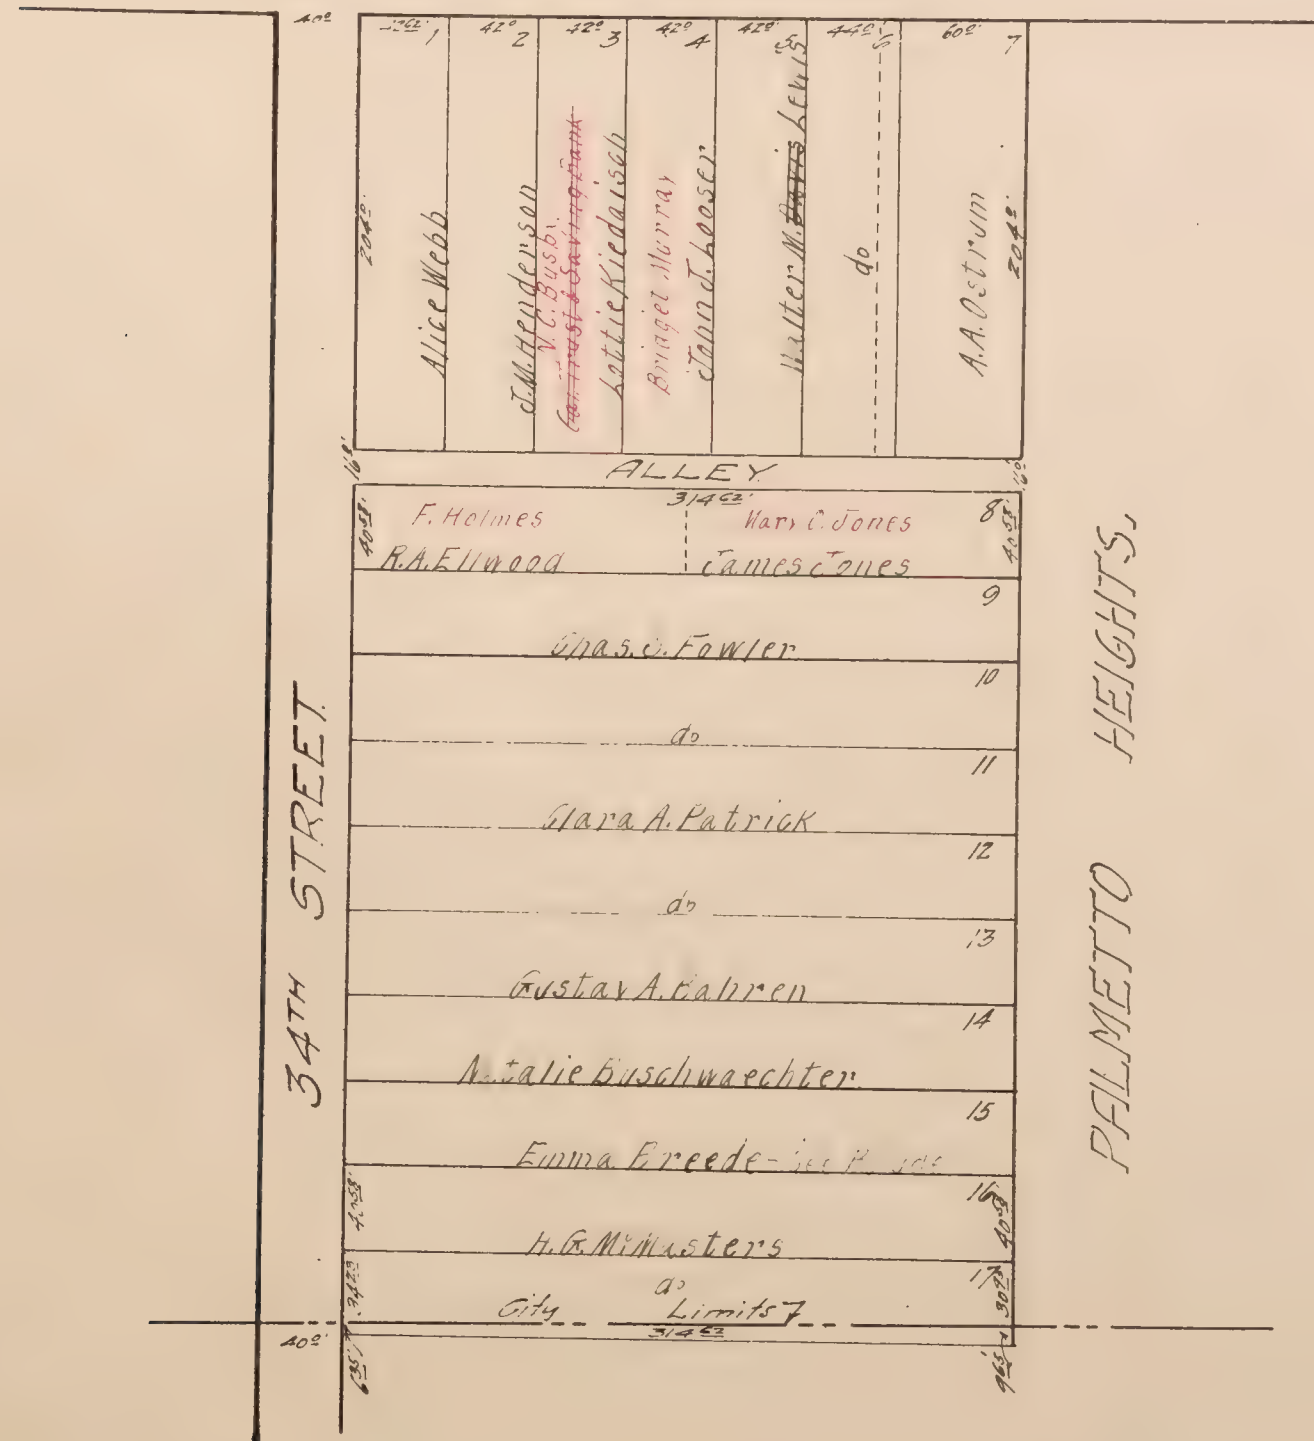 40⁰
1
42⁰ 2
42⁰ 3
42⁰ 4
42⁰ 5
44⁰ 6
60⁰ 7
204⁰
Alice Webb
J.M. Henderson
V. C. Busby
Trust & Saving Bank
Lottie Kiedaisch
Bridget Murray
John J. Looser
Walter M. Davis Lewis
do
A.A. Ostrum
204⁰
16⁰
ALLEY
16⁰
314⁶²
40⁵⁸
F. Holmes
R.A. Ellwood
Mary C. Jones
James Jones
8
40⁵⁸
9
Chas. S. Fowler
10
do
11
Clara A. Patrick
12
do
13
Gustav A. Pahren
14
Natalie Buschwaechter
15
Emma Breede
16
40⁵⁸
40⁵⁸
H.G. McMasters
17
34²³
30⁹³
do
City Limits
314⁶²
40⁰
6³⁵
9⁶⁵
34TH STREET
PALMETTO HEIGHTS,